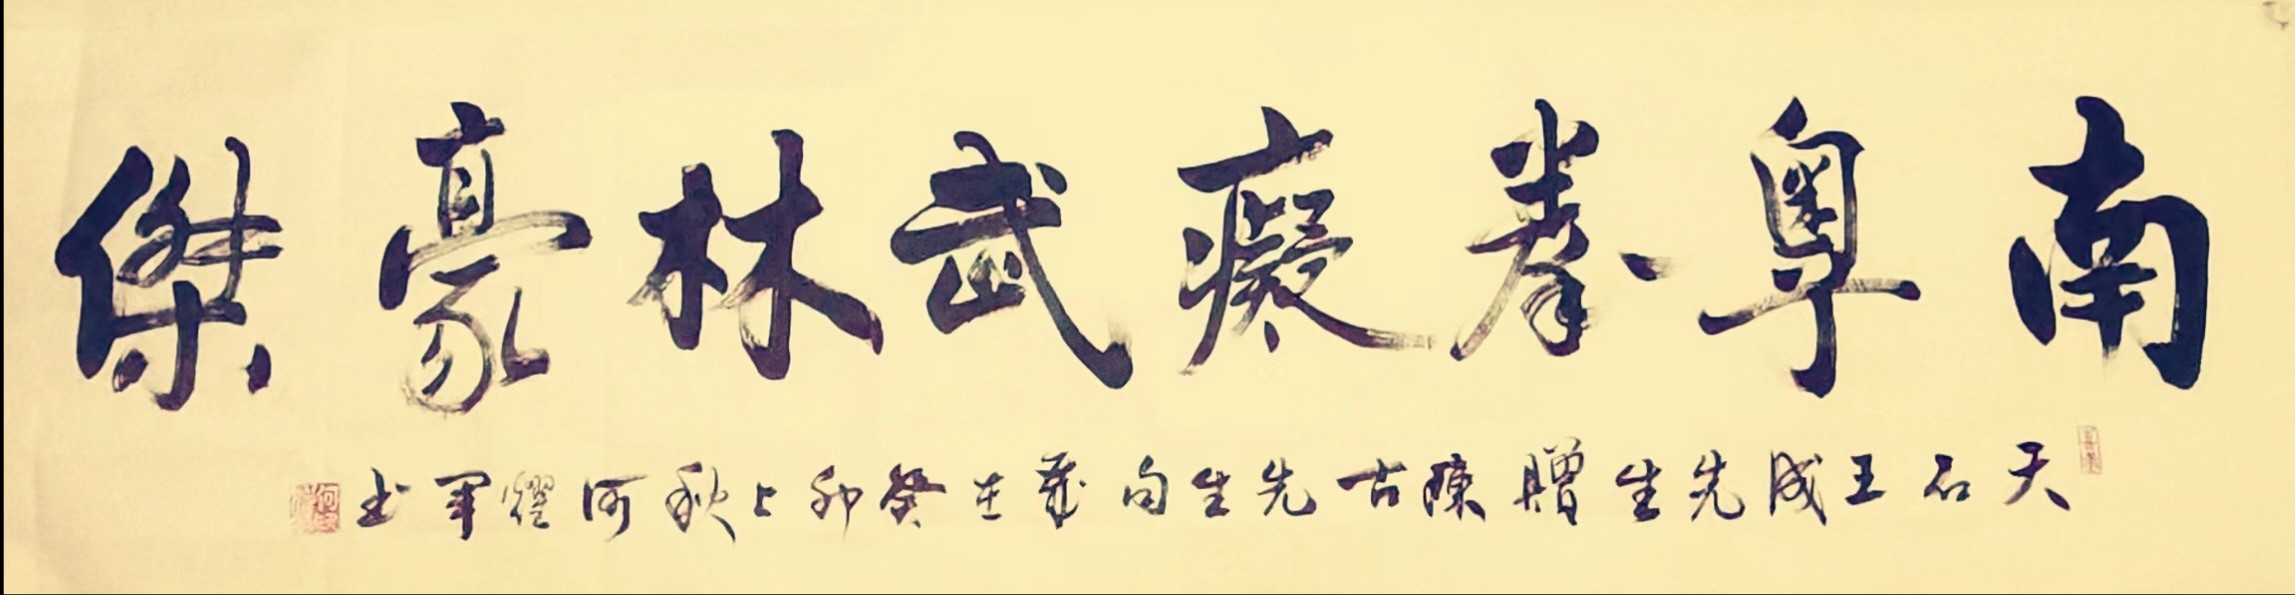 南粤拳癡武林豪傑
天石王成先生贈陳古先生句歲在癸卯上秋何耀軍书